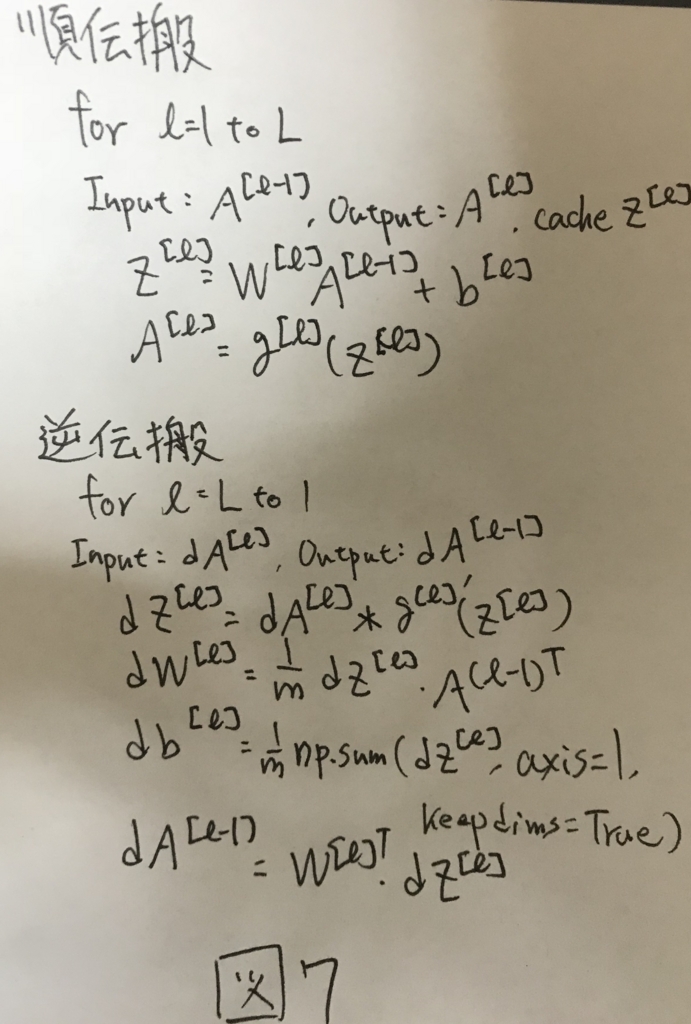 順伝搬
for l=1 to L
Input: A^[l-1], Output: A^[l], cache Z^[l]
Z^[l] = W^[l] A^[l-1] + b^[l]
A^[l] = g^[l](Z^[l])
逆伝搬
for l=L to 1
Input: dA^[l], Output: dA^[l-1]
dZ^[l] = dA^[l] * g^[l]'(Z^[l])
dW^[l] = 1/m dZ^[l] · A^(l-1)T
db^[l] = 1/m np.sum(dZ^[l], axis=1,
keepdims=True)
dA^[l-1] = W^[l]T · dZ^[l]
図7